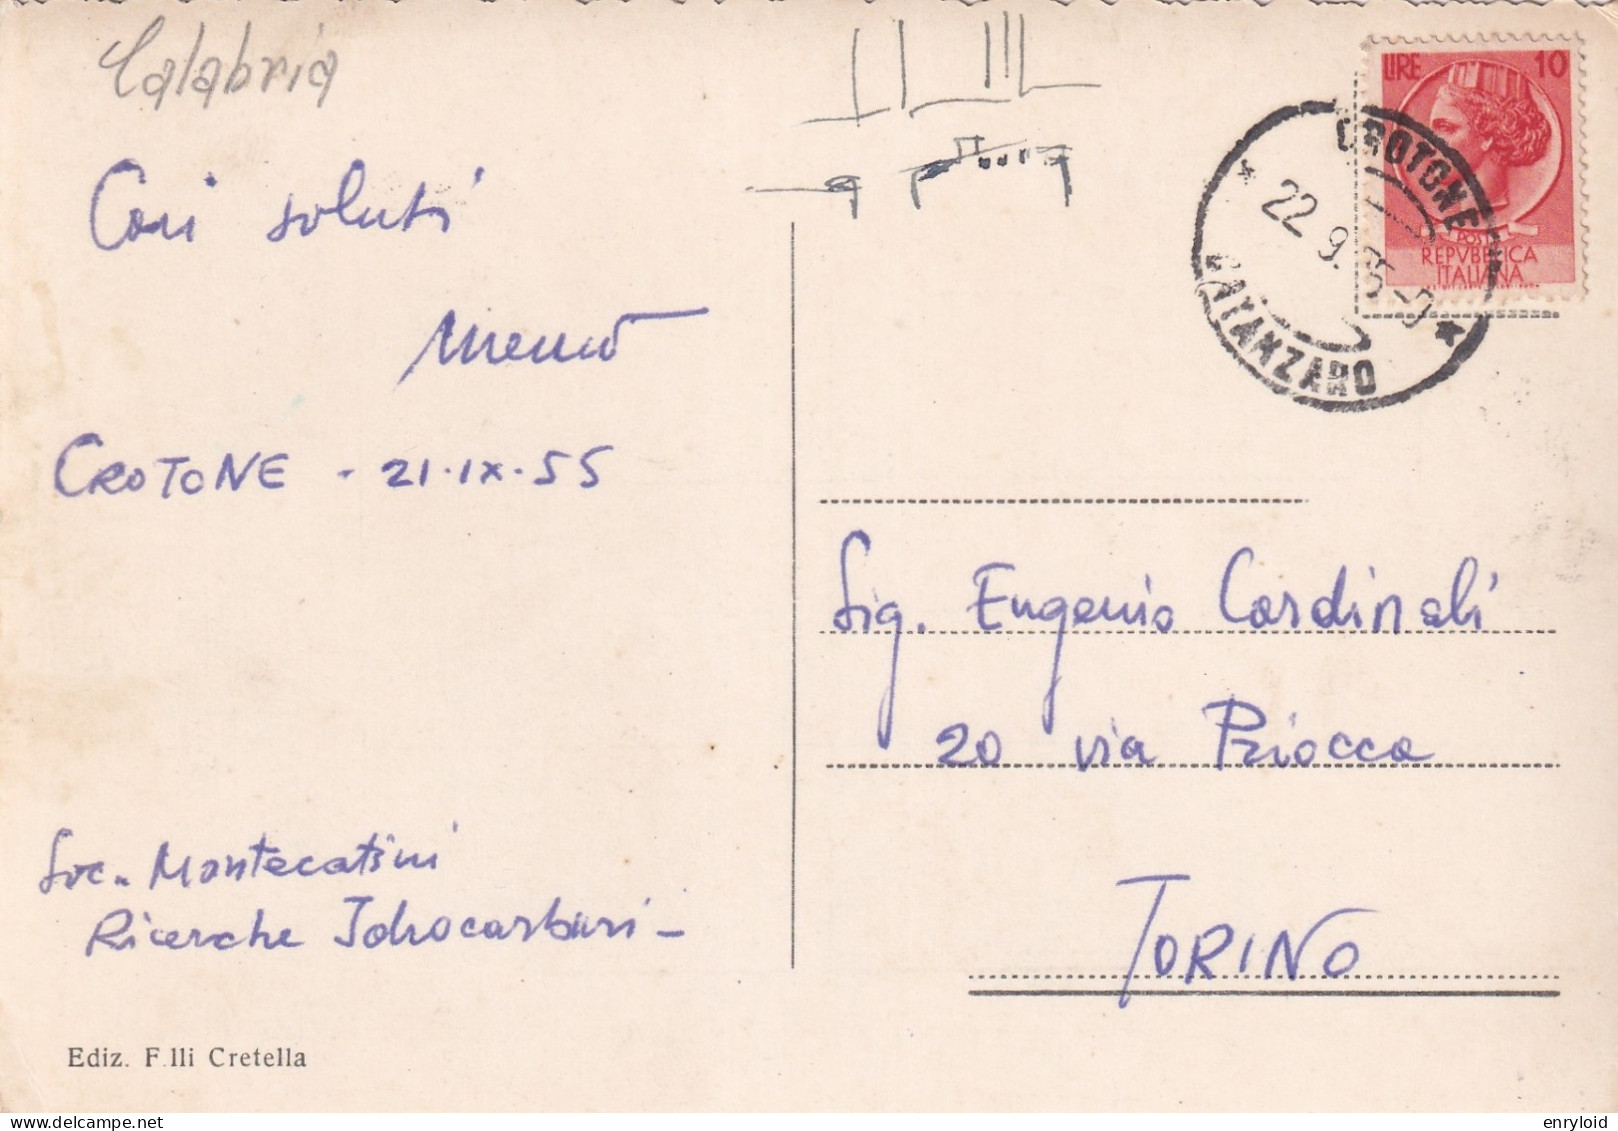 Calabria
Cari saluti
CROTONE - 21·IX·55
Soc. Montecatini
Ricerche Idrocarburi -
Ediz. F.lli Cretella
LIRE 10
POSTE
REPVBBLICA
ITALIANA
CROTONE
22.9.55-
CATANZARO
Sig. Eugenio Cardinali
20 via Priocca
TORINO
enryloid